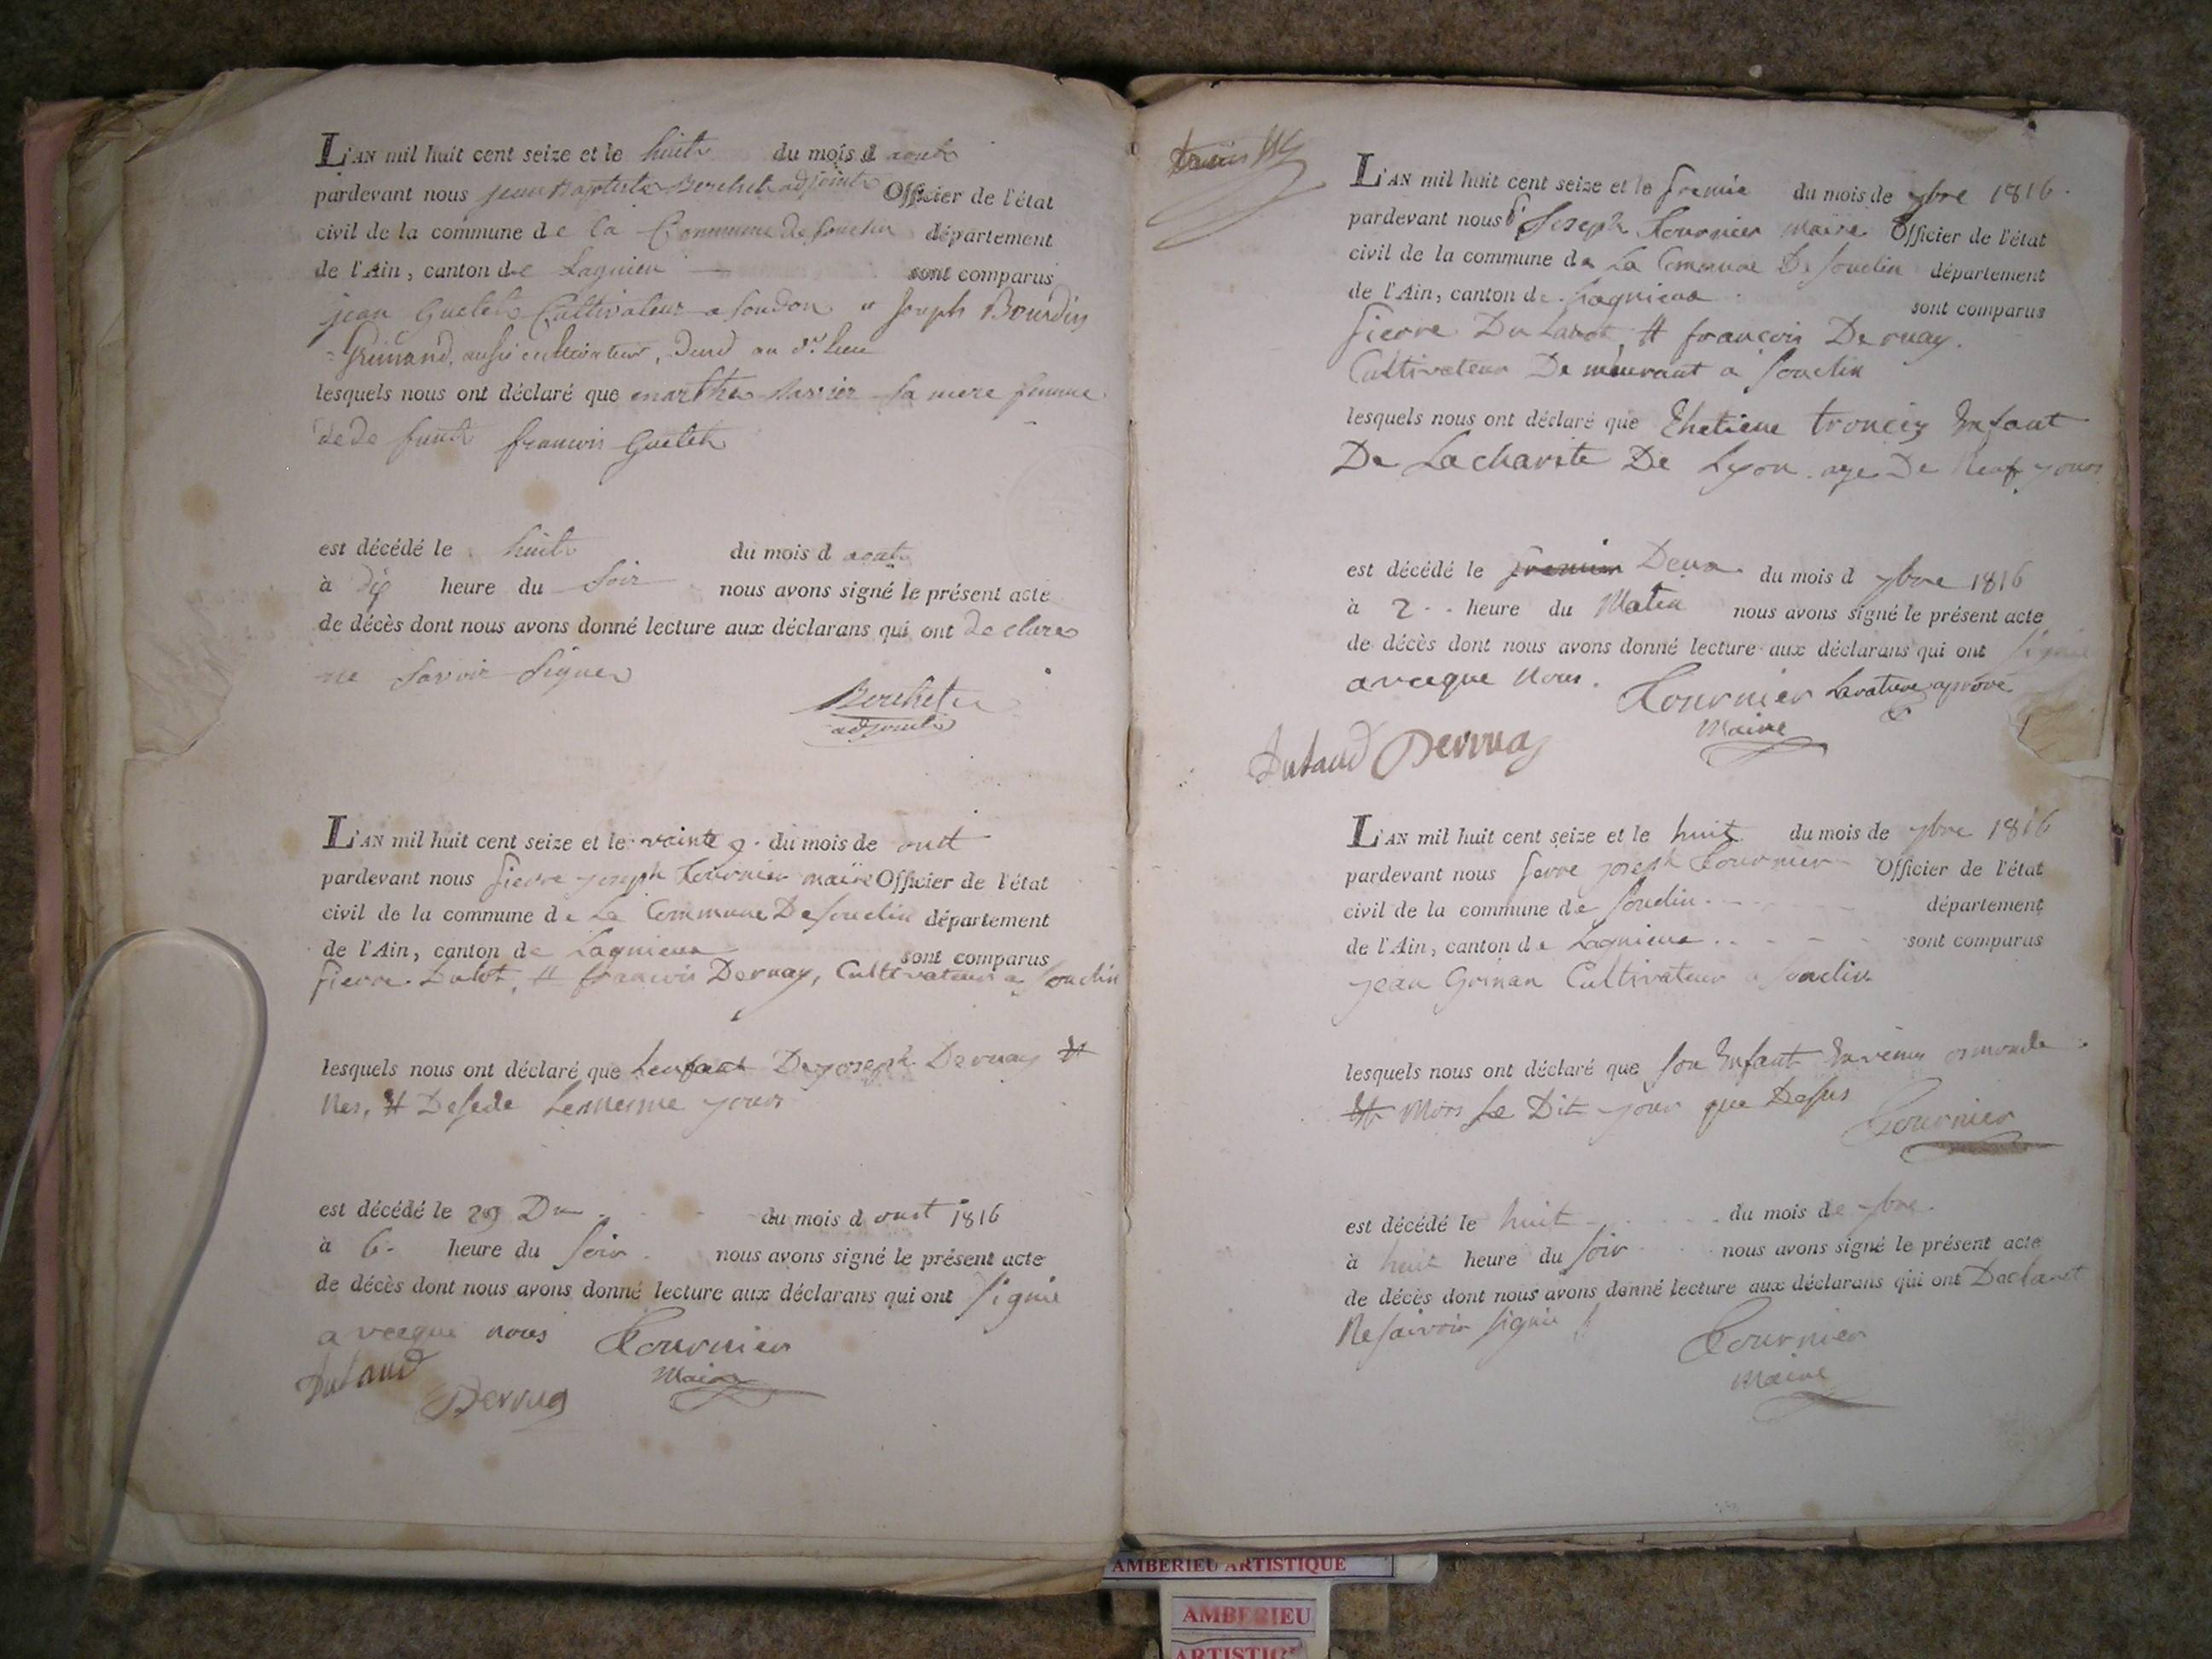 L'AN mil huit cent seize et le huit du mois d aout
pardevant nous jean Baptiste Berchet adjoint Officier de l'état
civil de la commune de la Commune de Souclin département
de l'Ain, canton de Lagnieu sont comparus
jean Guelet Cultivateur a Soudon et Joseph Bourdin
Grimand, aussi cultivateur, au dt. lieu
lesquels nous ont déclaré que marthe sa mere femme
de de funt francois Guelet
est décédé le huit du mois d aout
à dix heure du Soir nous avons signé le présent acte
de décès dont nous avons donné lecture aux déclarans qui ont declare
ne Savoir Signer
Berchet
adjoint
L'AN mil huit cent seize et le vainte 9 du mois de oust
pardevant nous Pierre joseph Tournier maire Officier de l'état
civil de la commune de La Commune De Souclin département
de l'Ain, canton de Lagnieux sont comparus
Pierre Dulot, # francois Dervay, Cultivateur a Souclin
lesquels nous ont déclaré que Lenfant De joseph Dervay #
Nes, # Desede Lememe jour
est décédé le 29 Du du mois d oust 1816
à 6 heure du Soir nous avons signé le présent acte
de décès dont nous avons donné lecture aux déclarans qui ont Signié
avecque nous Tournier
Maire
Dulaud Dervua
L'AN mil huit cent seize et le Premié du mois de 7bre 1816
pardevant nous Joseph Tournier maire Officier de l'état
civil de la commune de La Commune De Souclin département
de l'Ain, canton de Lagnieux sont comparus
Pierre # francois Dervay
Cultivateur Demeurant a Souclin
lesquels nous ont déclaré que Ehetiene troncin Enfant
De La charite De Lyon age De Neuf yours
est décédé le premier Deux du mois d 7bre 1816
à 2 heure du Matin nous avons signé le présent acte
de décès dont nous avons donné lecture aux déclarans qui ont Signié
avecque Nous. Tournier Larature aprové
Maire
Dulaud Dervua
L'AN mil huit cent seize et le huit du mois de 7bre 1816
pardevant nous joseph Tournier Officier de l'état
civil de la commune de Souclin département
de l'Ain, canton de Lagnieux sont comparus
jean Griman Cultivateur a Souclin
lesquels nous ont déclaré que Son Enfant
Mors Le Dit jour que Desus Tournier
est décédé le huit du mois de 7bre
à huit heure du Soir nous avons signé le présent acte
de décès dont nous avons donné lecture aux déclarans qui ont Declaret
Nesaivoir Signié
Tournier
Maire
AMBERIEU ARTISTIQUE
AMBERIEU
ARTISTIQ